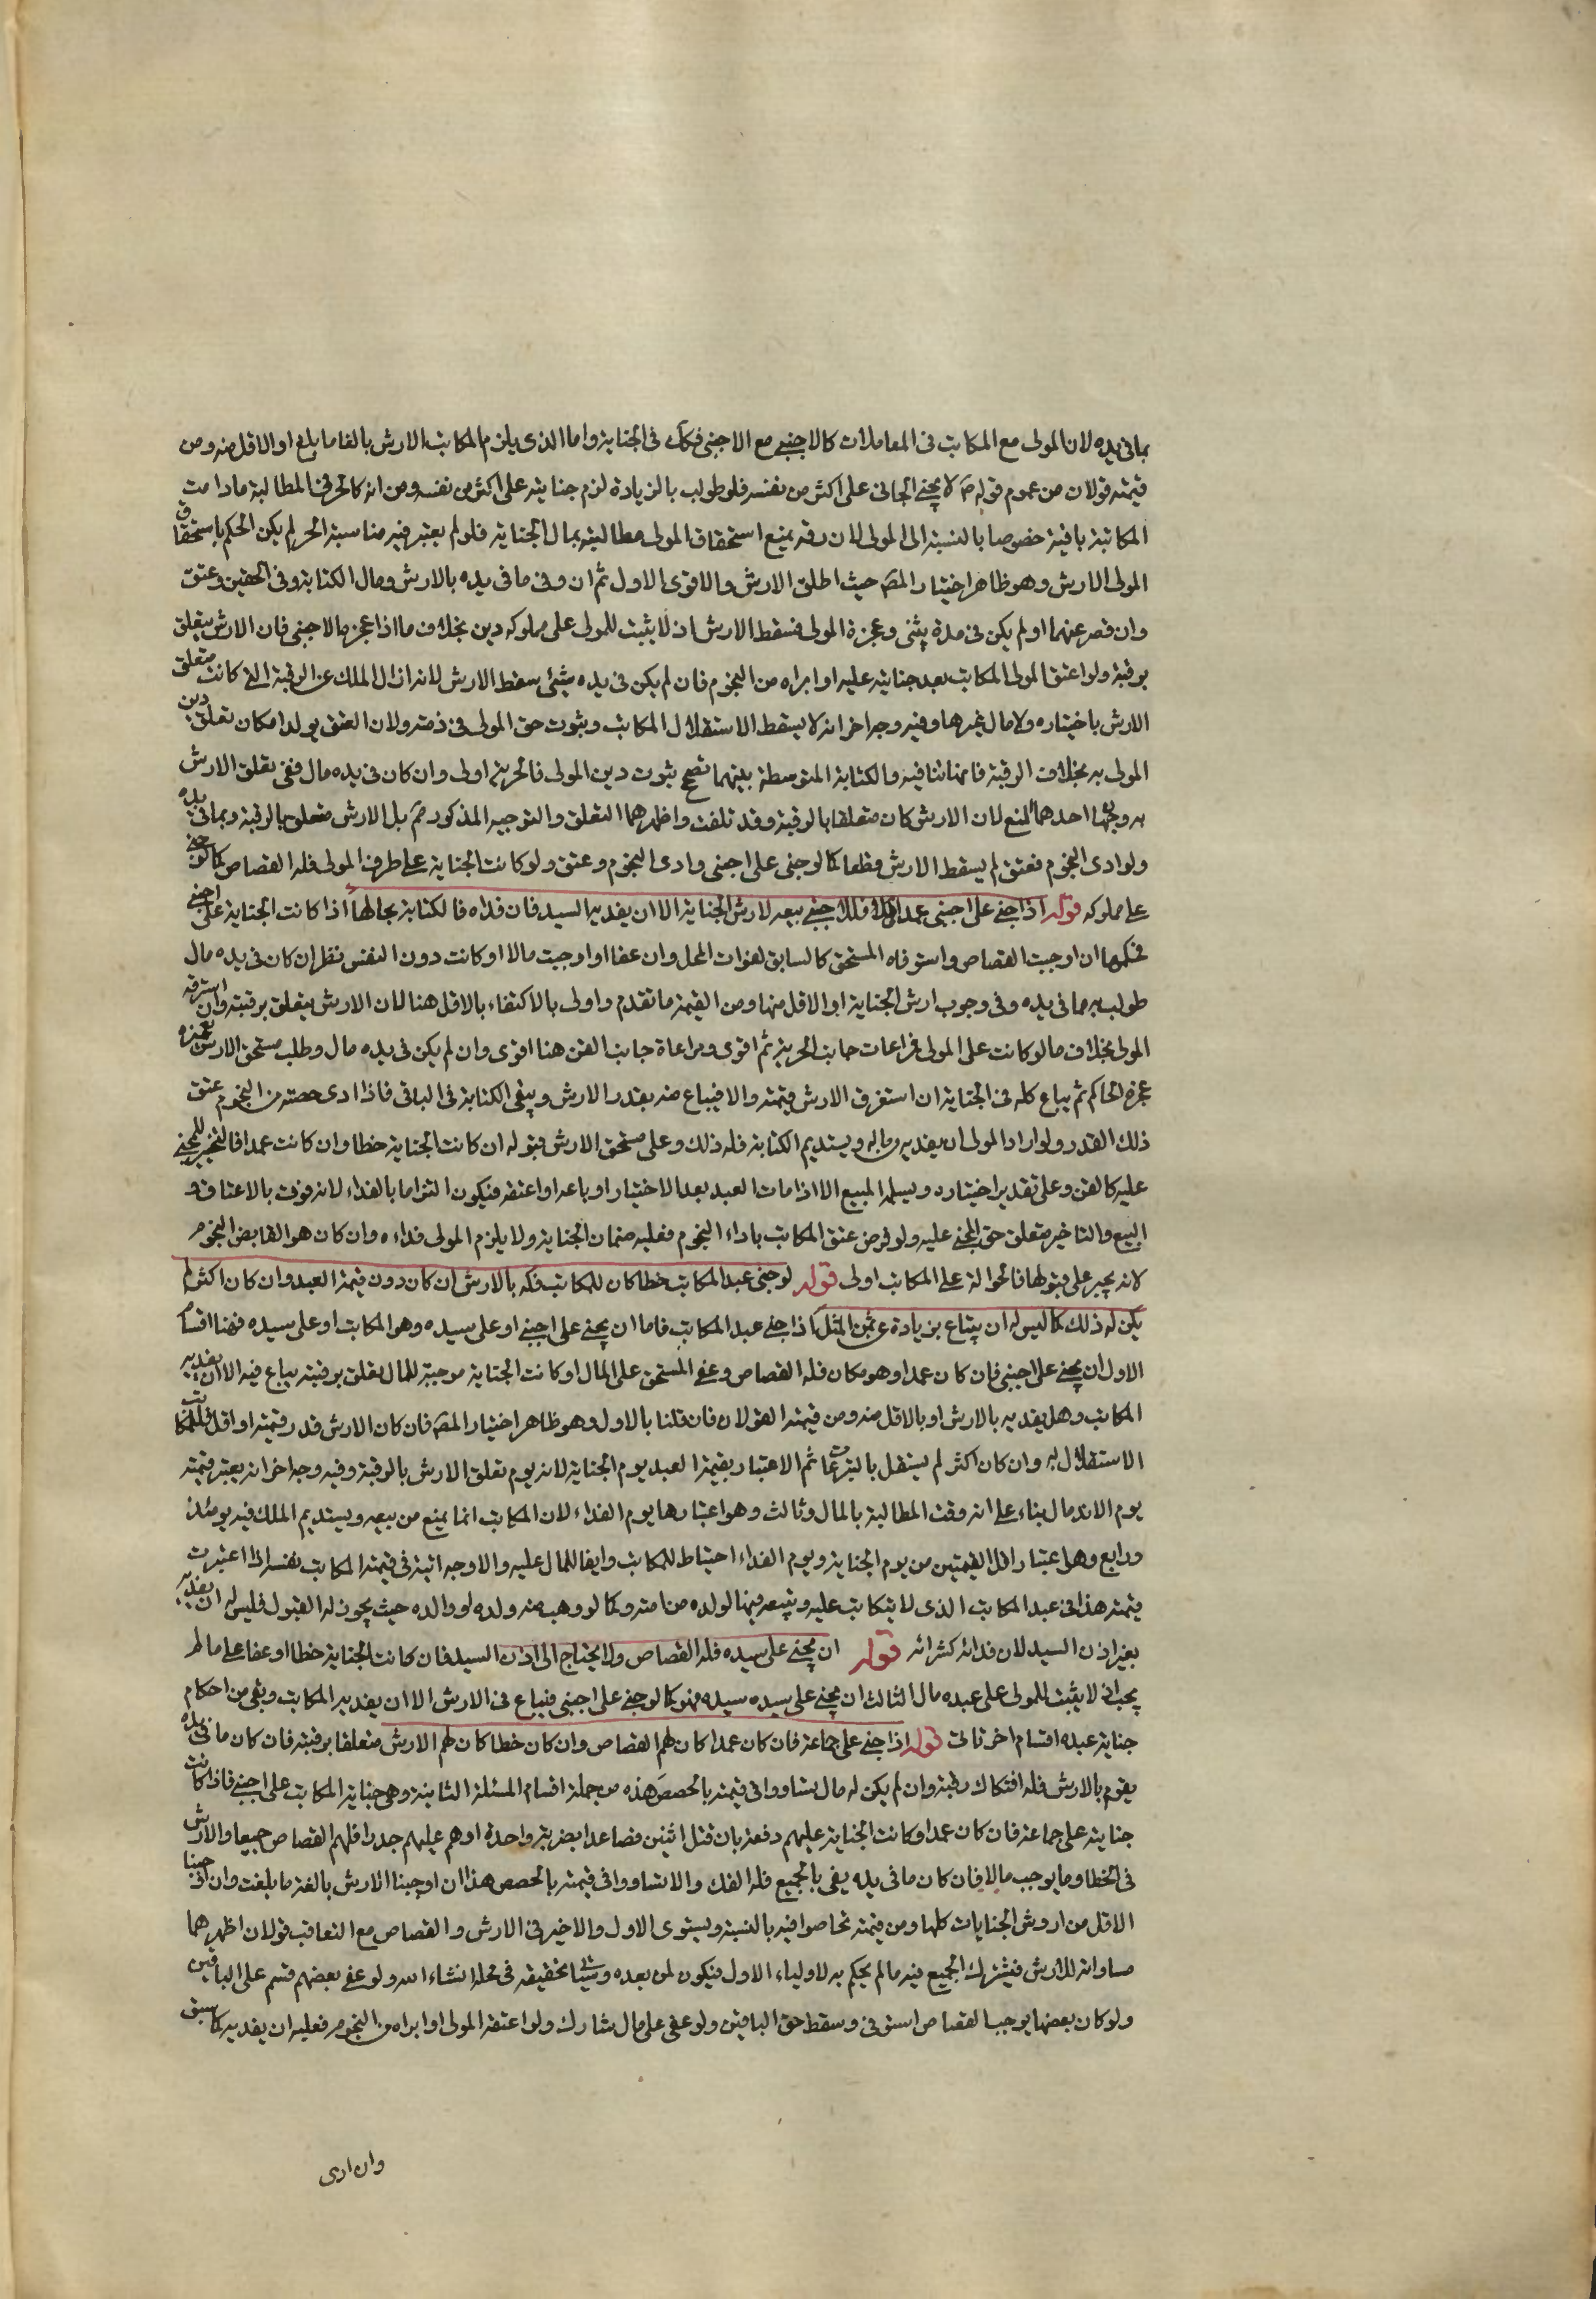 بمافى يده لان المولى مع المكاتب فى المعاملات كالاجنبى مع الاجنبى فكك فى الجناية واما الذى يلزم المكاتب الارش بالغا ما بلغ او الاقل منه ومن
قيمته قولان من عموم قوله ص لا يجنى الجانى على اكثر من نفسه فلو طولب بالزيادة لزم جنايته على اكثر من نفسه ومن انه كالحر فى المطالبة مادامت
المكاتبة باقية خصوصا بالنسبة الى المولى لان رقه يمنع استحقاق المولى مطالبته بمال الجناية فلو لم يعتبر فيه مناسبة الحر لم يكن الحكم باستحقاق
المولى الارش وهو ظاهر اختيار المصـ حيث اطلق الارش والاقوى الاول ثم ان وفى ما فى يده بالارش ومال الكتابة وفى الحقين وعتق
وان قصر عنهما او لم يكن فى يده شئ وعجزه المولى فسقط الارش اذ لا يثبت للمولى على مملوكه دين بخلاف ما اذا عجز بالاجنبى فان الارش يتعلق
برقبته ولو اعتق المولى المكاتب بعد جنايته عليه او ابراه من النجوم فان لم يكن فى يده شئ سقط الارش لانه ازال الملك عن الرقبة التى كانت متعلق
الارش باختياره ولا مال غيرها وفيه وجه اخر انه لا يسقط لاستقلال المكاتب وثبوت حق المولى فى ذمته ولان العتق يولد امكان تعلق دين
المولى به بخلاف الرقبة فانها تنافيه والكتابة المتوسطة بينهما تصحح ثبوت دين المولى فالحرية اولى وان كان فى يده مال ففى تعلق الارش
به وجهان احدهما المنع لان الارش كان متعلقا بالرقبة وقد تلفت واظهرهما التعلق والتوجيه المذكور ثم بل الارش متعلق بالرقبة وبما فى يده
ولو ادى النجوم فعتق لم يسقط الارش قطعا كما لو جنى على اجنبى وادى النجوم وعتق ولو كانت الجناية على طرف المولى فله القصاص كما لو جنى
على مملوكه قوله اذا جنى على اجنبى عمدا فللاجنبى بيعه لارش الجناية الا ان يفديه السيد فان فداه فالكتابة بحالها اذا كانت الجناية على اجنبى
فحكمها ان اوجبت القصاص واستوفاه المستحق كالسابق لفوات المحل وان عفا او اوجبت مالا او كانت دون النفس نظر ان كان فى يده مال
طولب به مما فى يده وفى وجوب ارش الجناية او الاقل منها ومن القيمة ما تقدم واولى بالاكتفاء بالاقل هنا لان الارش يتعلق برقبته وان استرقه
المولى بخلاف ما لو كانت على المولى فراعات جانب الحرية ثم اقوى ومراعاة جانب القن هنا اقوى وان لم يكن فى يده مال وطلب مستحق الارش تعجيزه
عجزه الحاكم ثم يباع كله فى الجناية ان استغرق الارش قيمته والا فيباع منه بقدر الارش ويبقى الكتابة فى الباقى فاذا ادى حصته من النجوم عتق
ذلك القدر ولو اراد المولى ان يفديه من ماله ويستديم الكتابة فله ذلك وعلى مستحق الارش قبوله ان كانت الجناية خطا وان كانت عمدا فالتخيير للمجنى
عليه كالقن وعلى تقدير اختياره ويسلمه المبيع الا اذا مات العبد بعد الاختيار او باعه او اعتقه فيكون التزاما بالفداء لانه فوت بالاعتاق و
البيع والتاخير متعلق حق المجنى عليه ولو فرض عتق المكاتب باداء النجوم فعليه ضمان الجناية ولا يلزم المولى فداءه وان كان هو القابض النجوم
لانه يجبر على قبولها فالحوالة على المكاتب اولى قوله لو جنى عبد المكاتب خطا كان للمكاتب فكه بالارش ان كان دون قيمة العبد وان كان اكثر لم
يكن له ذلك كما ليس له ان يبتاع بزيادة عن ثمن المثل اذا جنى عبد المكاتب فاما ان يجنى على اجنبى او على سيده وهو المكاتب او على سيده فهنا اقسام
الاول ان يجنى على اجنبى فان كان عمدا وهو مكان فله القصاص وعفى المستحق على المال او كانت الجناية موجبة للمال تعلق برقبته يباع فيه الا ان يفديه
المكاتب وهل يفديه بالارش او بالاقل منه ومن قيمته القولان فان قلنا بالاول وهو ظاهر اختيار المصـ فان كان الارش قدر قيمته او اقل فللمكاتب
الاستقلال به وان كان اكثر لم يستقل بالتبرعات ثم الاعتبار بقيمة العبد يوم الجناية لانه يوم تعلق الارش بالرقبة وفيه وجه اخر انه يعتبر قيمته
يوم الاندمال بناء على انه وقت المطالبة بالمال وثالث وهو اعتبارها يوم الفداء لان المكاتب انما يمنع من بيعه ويستديم الملك فيه يومئذ
ورابع وهو اعتبار اقل القيمتين من يوم الجناية ويوم الفداء احتياط للمكاتب وايفا للمال عليه والاوجه اتية فى قيمة المكاتب نفسه اذا اعتبرت
قيمته هذا فى عبد المكاتب الذى لا يتكاتب عليه ويتبعه فيها لولده من امته وكما لو وهب منه ولده او والده حيث يجوز له القبول فليس له ان يفديه
بغير اذن السيد لان فدائه كشرائه قوله ان يجنى على سيده فله القصاص ولا يحتاج الى اذن السيد فان كانت الجناية خطا او عفا على مال لم
يجب اذ لا يثبت للمولى على عبده مال الثالث ان يجنى على سيده سيده فهو كما لو جنى على اجنبى فيباع فى الارش الا ان يفديه المكاتب وبقى من احكام
جناية عبده اقسام اخر تاتى قوله اذا جنى على جماعة فان كان عمدا كان لهم القصاص وان كان خطا كان لهم الارش متعلقا برقبته فان كان ما فى يده
يقوم بالارش فله افتكاك رقبته وان لم يكن له مال تساووا فى قيمته بالحصص هذه من جملة اقسام المسئلة الثانية وهى جناية المكاتب على اجنبى فاذا كانت
جنايته على جماعة فان كان عمدا وكانت الجناية عليهم دفعة بان قتل اثنين فصاعدا بضربة واحدة او هدم عليهم جدرا فلهم القصاص جميعا والارش
فى الخطا وما يوجب مالا فان كان ما فى يده يفى بالجميع فله الفك والا تساووا فى قيمته بالحصص هذا ان اوجبنا الارش بالغة ما بلغت وان اوجبنا
الاقل من اروش الجنايات كلها ومن قيمته تحاصوا فيه بالنسبة ويستوى الاول والاخير فى الارش والقصاص مع التعاقب قولان اظهرهما
مساواته للارش فيشترك الجميع فيه ما لم يحكم به لاولياء الاول فيكون لمن بعده وسياتى تحقيقه فى محله انشاء الله ولو عفى بعضهم قسم على الباقين
ولو كان بعضها يوجب القصاص استوفى وسقط حق الباقين ولو عفى على مال شارك ولو اعتقه المولى او ابراه من النجوم فعليه ان يفديه كما سبق
وان ادى